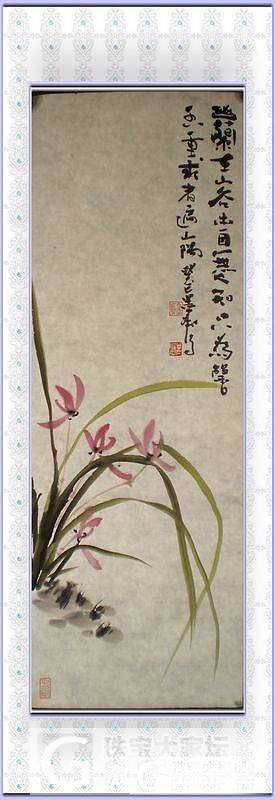 幽蘭在山谷本自無人知只為馨
香重求者遍山隅 癸巳
珠宝大家坛